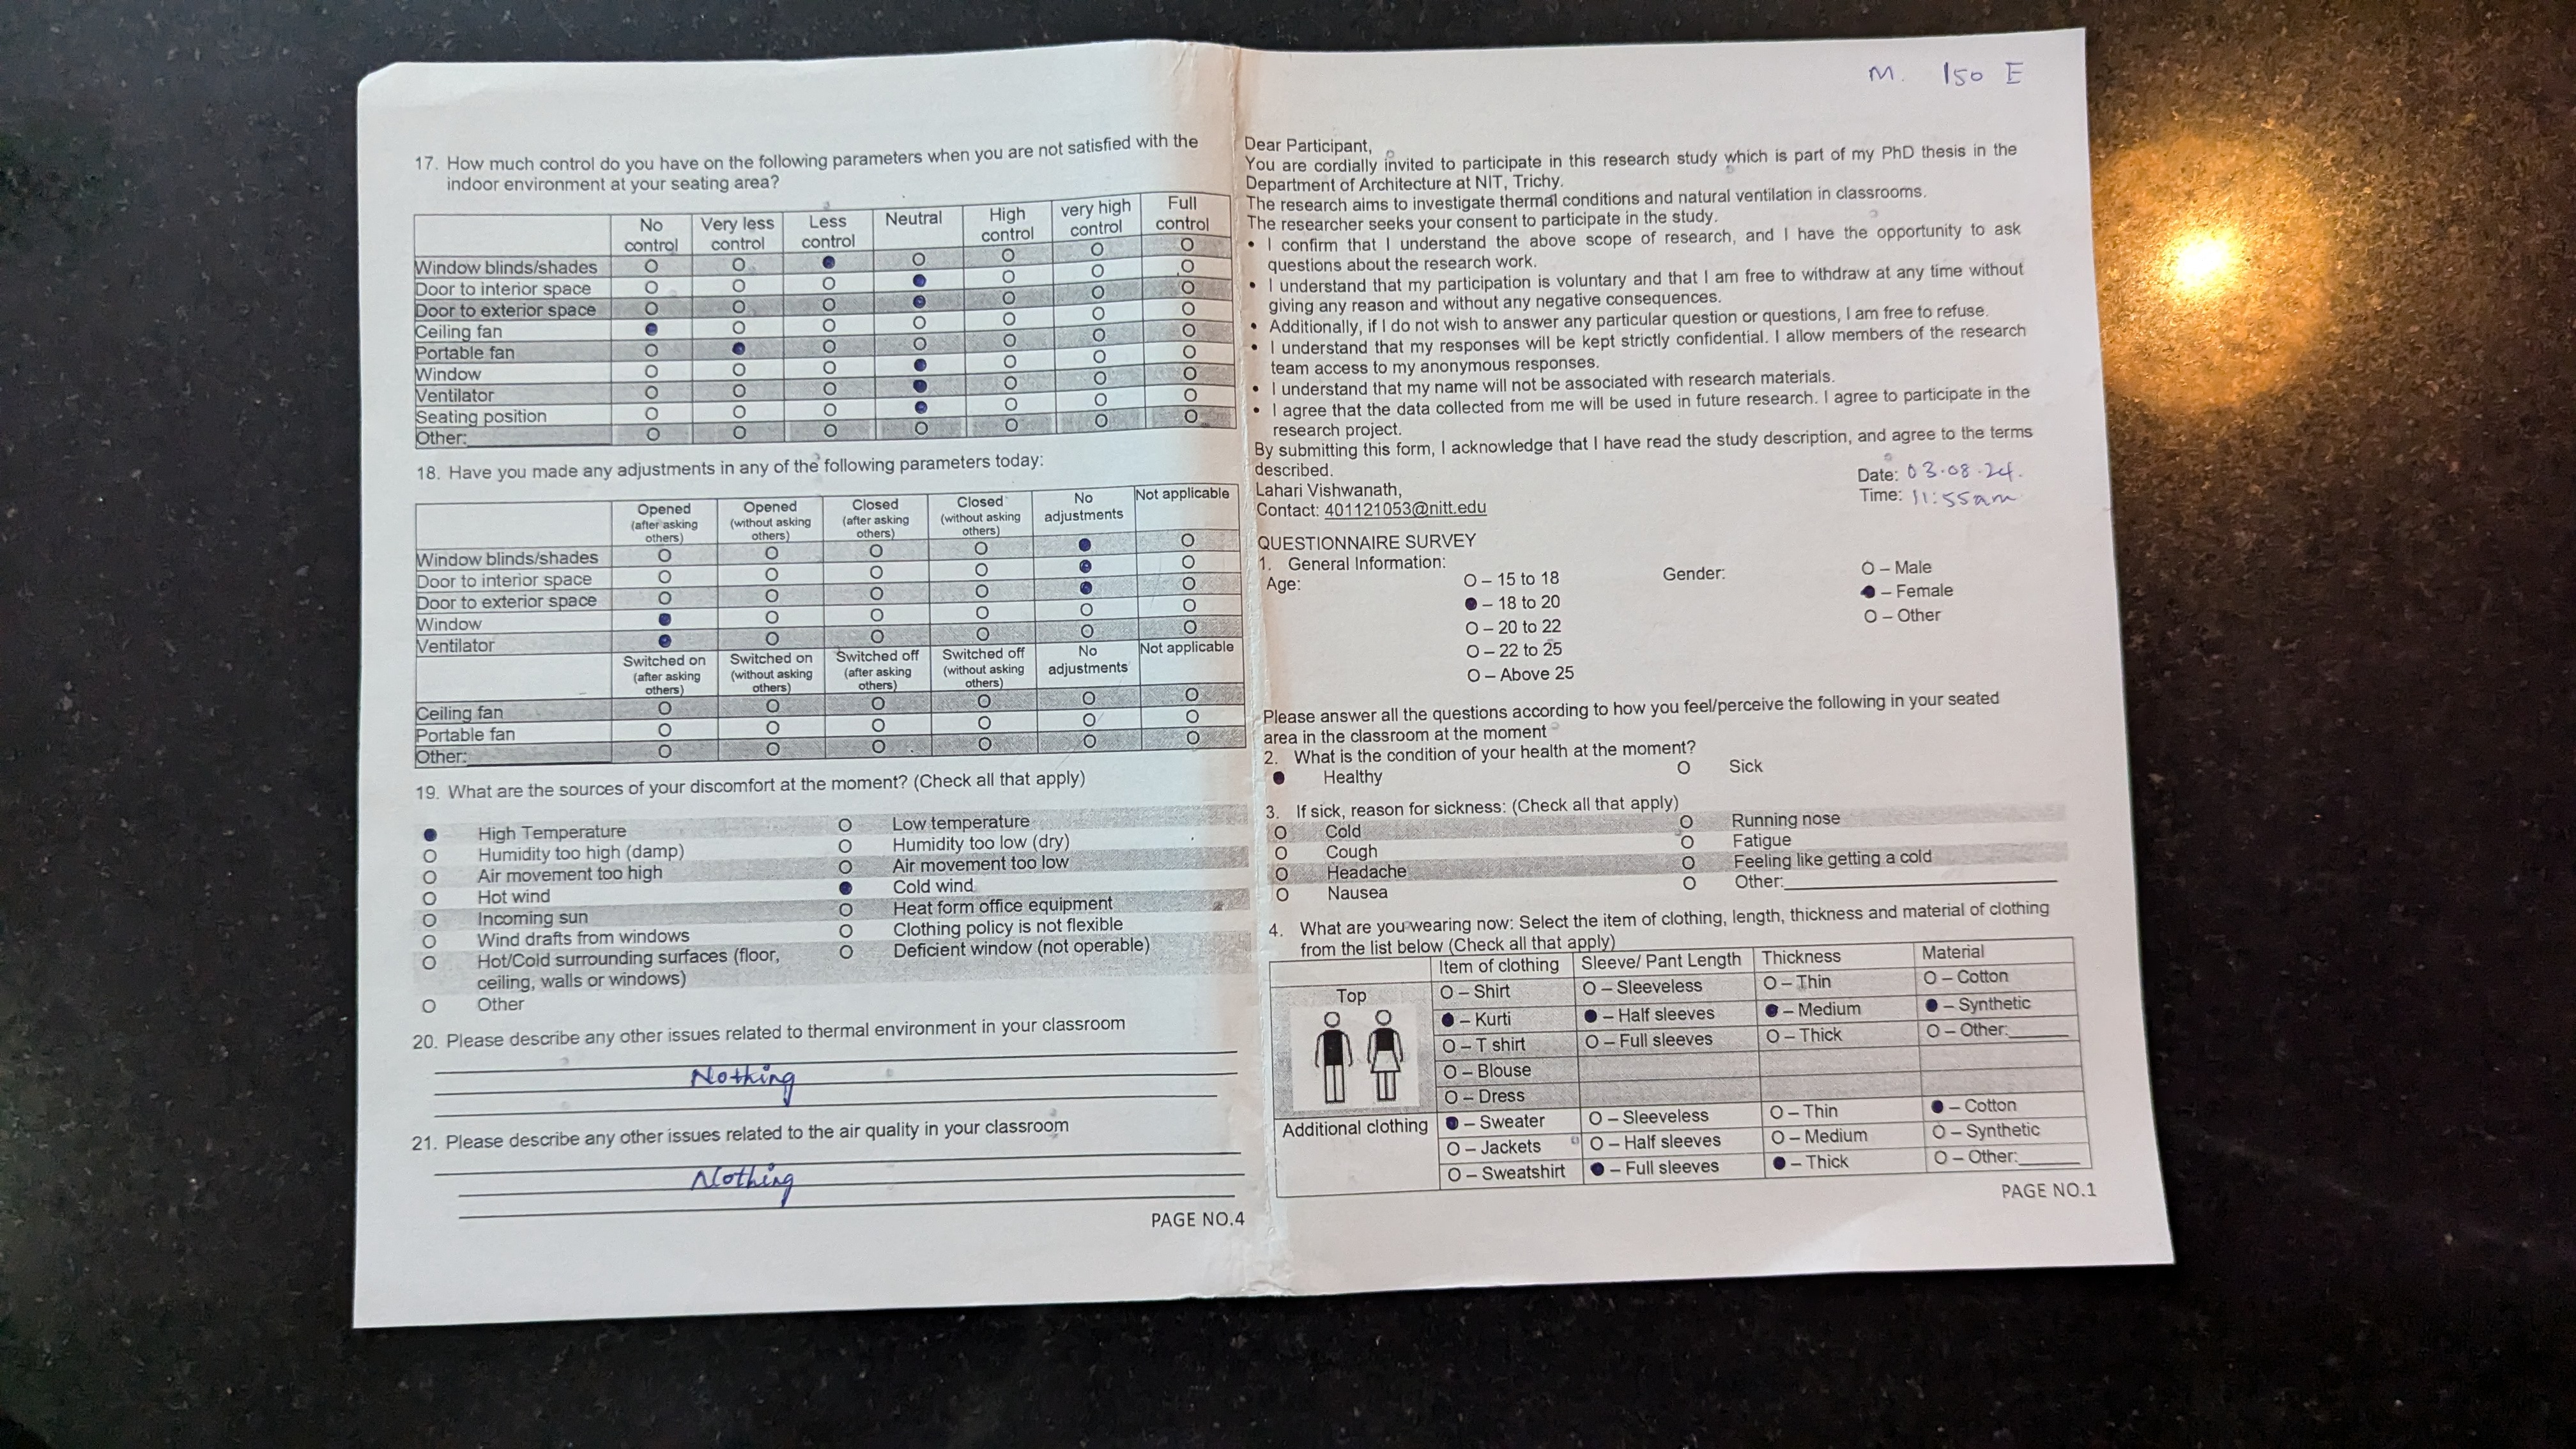 17. How much control do you have on the following parameters when you are not satisfied with the
indoor environment at your seating area?
No control Very less control Less control Neutral High control very high control Full control
Window blinds/shades O O ● O O O O
Door to interior space O O O ● O O O
Door to exterior space O O O ● O O O
Ceiling fan ● O O O O O O
Portable fan O ● O O O O O
Window O O O ● O O O
Ventilator O O O ● O O O
Seating position O O O ● O O O
Other:__________ O O O O O O O
18. Have you made any adjustments in any of the following parameters today:
Opened (after asking others) Opened (without asking others) Closed (after asking others) Closed (without asking others) No adjustments Not applicable
Window blinds/shades O O O O ● O
Door to interior space O O O O ● O
Door to exterior space O O O O ● O
Window ● O O O O O
Ventilator ● O O O O O
Switched on (after asking others) Switched on (without asking others) Switched off (after asking others) Switched off (without asking others) No adjustments Not applicable
Ceiling fan O O O O O O
Portable fan O O O O O O
Other:__________ O O O O O O
19. What are the sources of your discomfort at the moment? (Check all that apply)
● High Temperature O Low temperature
O Humidity too high (damp) O Humidity too low (dry)
O Air movement too high O Air movement too low
O Hot wind ● Cold wind
O Incoming sun O Heat form office equipment
O Wind drafts from windows O Clothing policy is not flexible
O Hot/Cold surrounding surfaces (floor, O Deficient window (not operable)
ceiling, walls or windows)
O Other
20. Please describe any other issues related to thermal environment in your classroom
Nothing
21. Please describe any other issues related to the air quality in your classroom
Nothing
PAGE NO.4
M. 150 E
Dear Participant,
You are cordially invited to participate in this research study which is part of my PhD thesis in the
Department of Architecture at NIT, Trichy.
The research aims to investigate thermal conditions and natural ventilation in classrooms.
The researcher seeks your consent to participate in the study.
• I confirm that I understand the above scope of research, and I have the opportunity to ask
questions about the research work.
• I understand that my participation is voluntary and that I am free to withdraw at any time without
giving any reason and without any negative consequences.
• Additionally, if I do not wish to answer any particular question or questions, I am free to refuse.
• I understand that my responses will be kept strictly confidential. I allow members of the research
team access to my anonymous responses.
• I understand that my name will not be associated with research materials.
• I agree that the data collected from me will be used in future research. I agree to participate in the
research project.
By submitting this form, I acknowledge that I have read the study description, and agree to the terms
described.
Date: 03.08.24.
Lahari Vishwanath,
Time: 11:55am
Contact: 401121053@nitt.edu
QUESTIONNAIRE SURVEY
1. General Information:
Age: O – 15 to 18 Gender: O – Male
● – 18 to 20 ● – Female
O – 20 to 22 O – Other
O – 22 to 25
O – Above 25
Please answer all the questions according to how you feel/perceive the following in your seated
area in the classroom at the moment
2. What is the condition of your health at the moment?
● Healthy O Sick
3. If sick, reason for sickness: (Check all that apply)
O Cold O Running nose
O Cough O Fatigue
O Headache O Feeling like getting a cold
O Nausea O Other:__________
4. What are you wearing now: Select the item of clothing, length, thickness and material of clothing
from the list below (Check all that apply)
Item of clothing Sleeve/ Pant Length Thickness Material
Top O – Shirt O – Sleeveless O – Thin O – Cotton
● – Kurti ● – Half sleeves ● – Medium ● – Synthetic
O – T shirt O – Full sleeves O – Thick O – Other:______
O – Blouse
O – Dress
Additional clothing ● – Sweater O – Sleeveless O – Thin ● – Cotton
O – Jackets O – Half sleeves O – Medium O – Synthetic
O – Sweatshirt ● – Full sleeves ● – Thick O – Other:______
PAGE NO.1